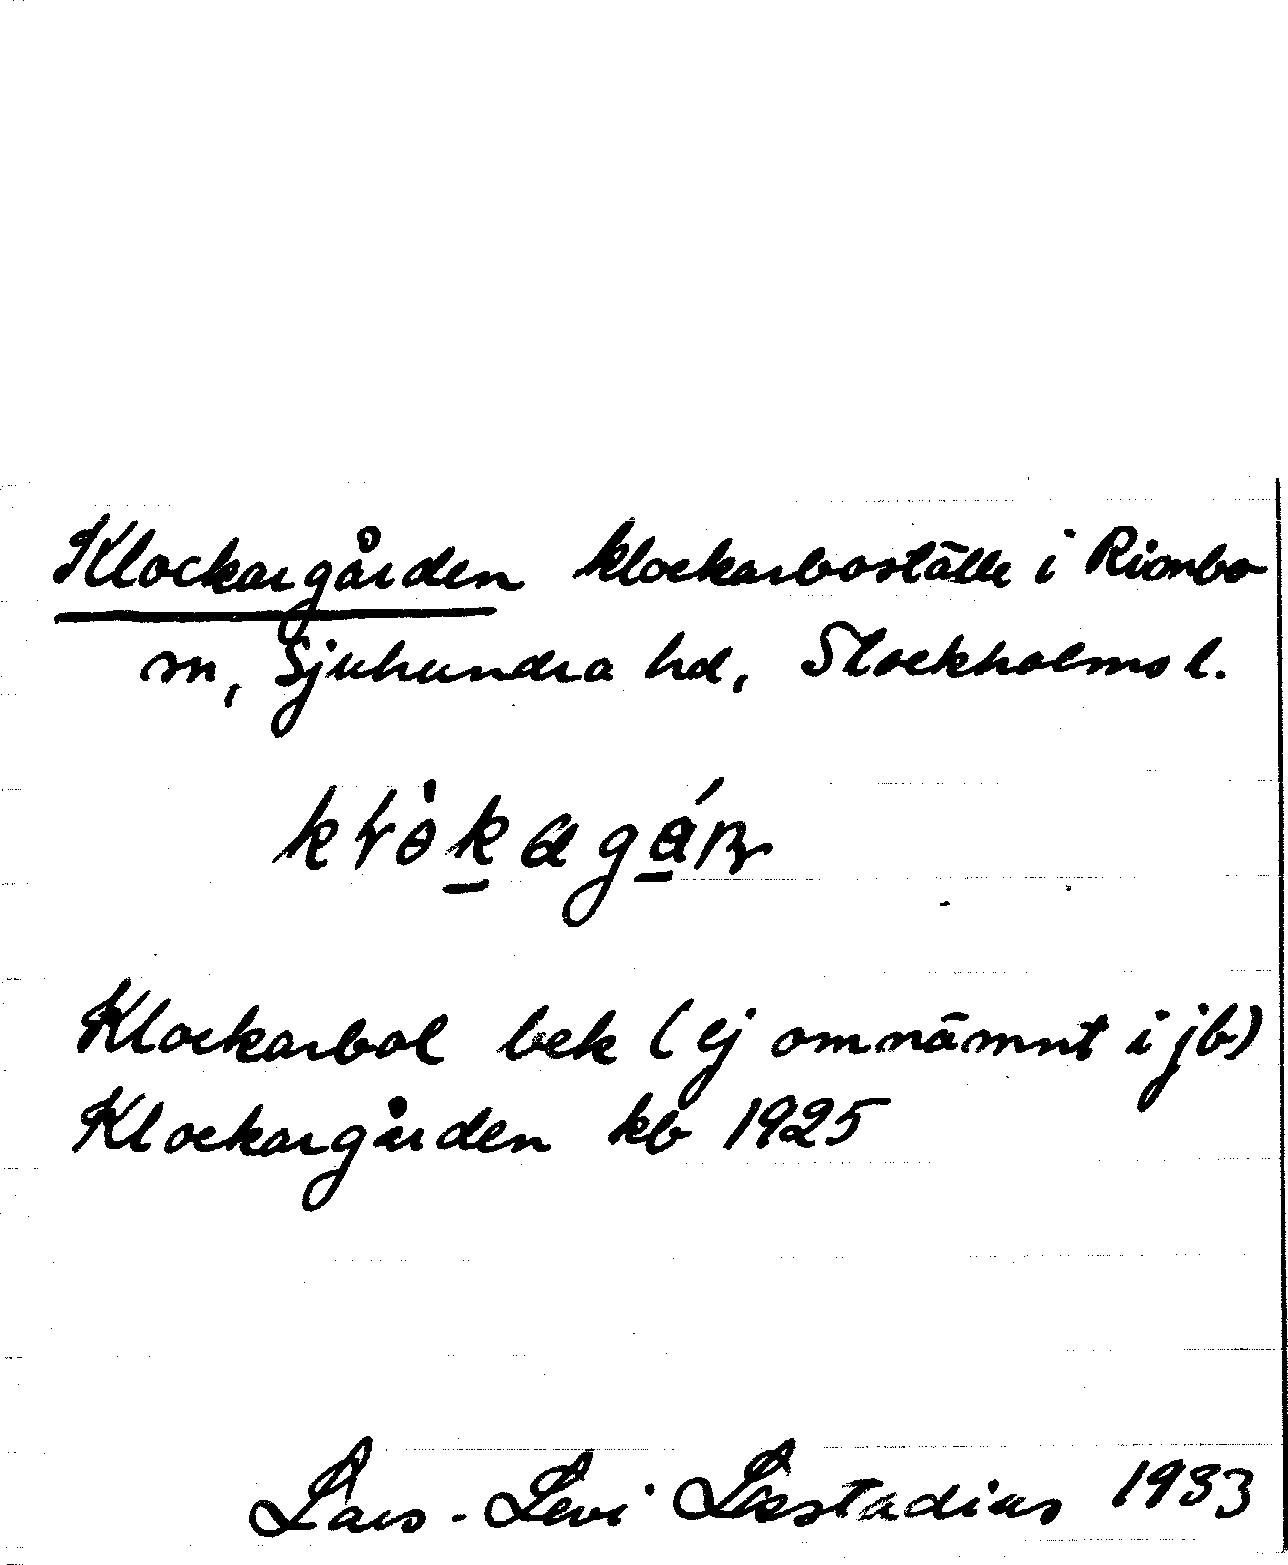 Klockargården klockarboställe i Rimbo
sn, Sjuhundra hd, Stockholms l.
Klockarbol bek (ej omnämnt i jb)
Klockargården kb 1925
Lars-Levi Læstadius 1933